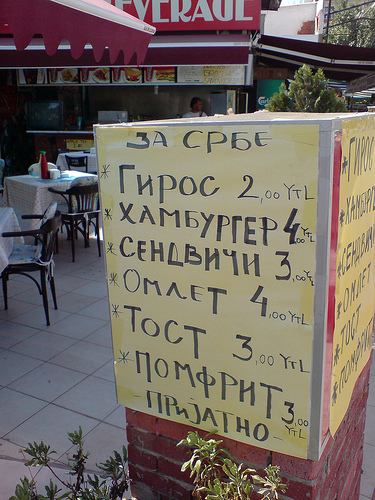 EVERAGE
ЗА СРБЕ
* ГИРОС 2,00 YTL
* ХАМБУРГЕР 4,00 YTL
* СЕНДВИЧИ 3,00 YTL
* ОМЛЕТ 4,00 YTL
* ТОСТ 3,00 YTL
* ПОМФРИТ 3,00 YTL
ПРИЈАТНО
* ГИРОС
* ХАМБУР
* СЕНДВИ
* ОМЛЕТ
* ТОСТ
* ПОМФР